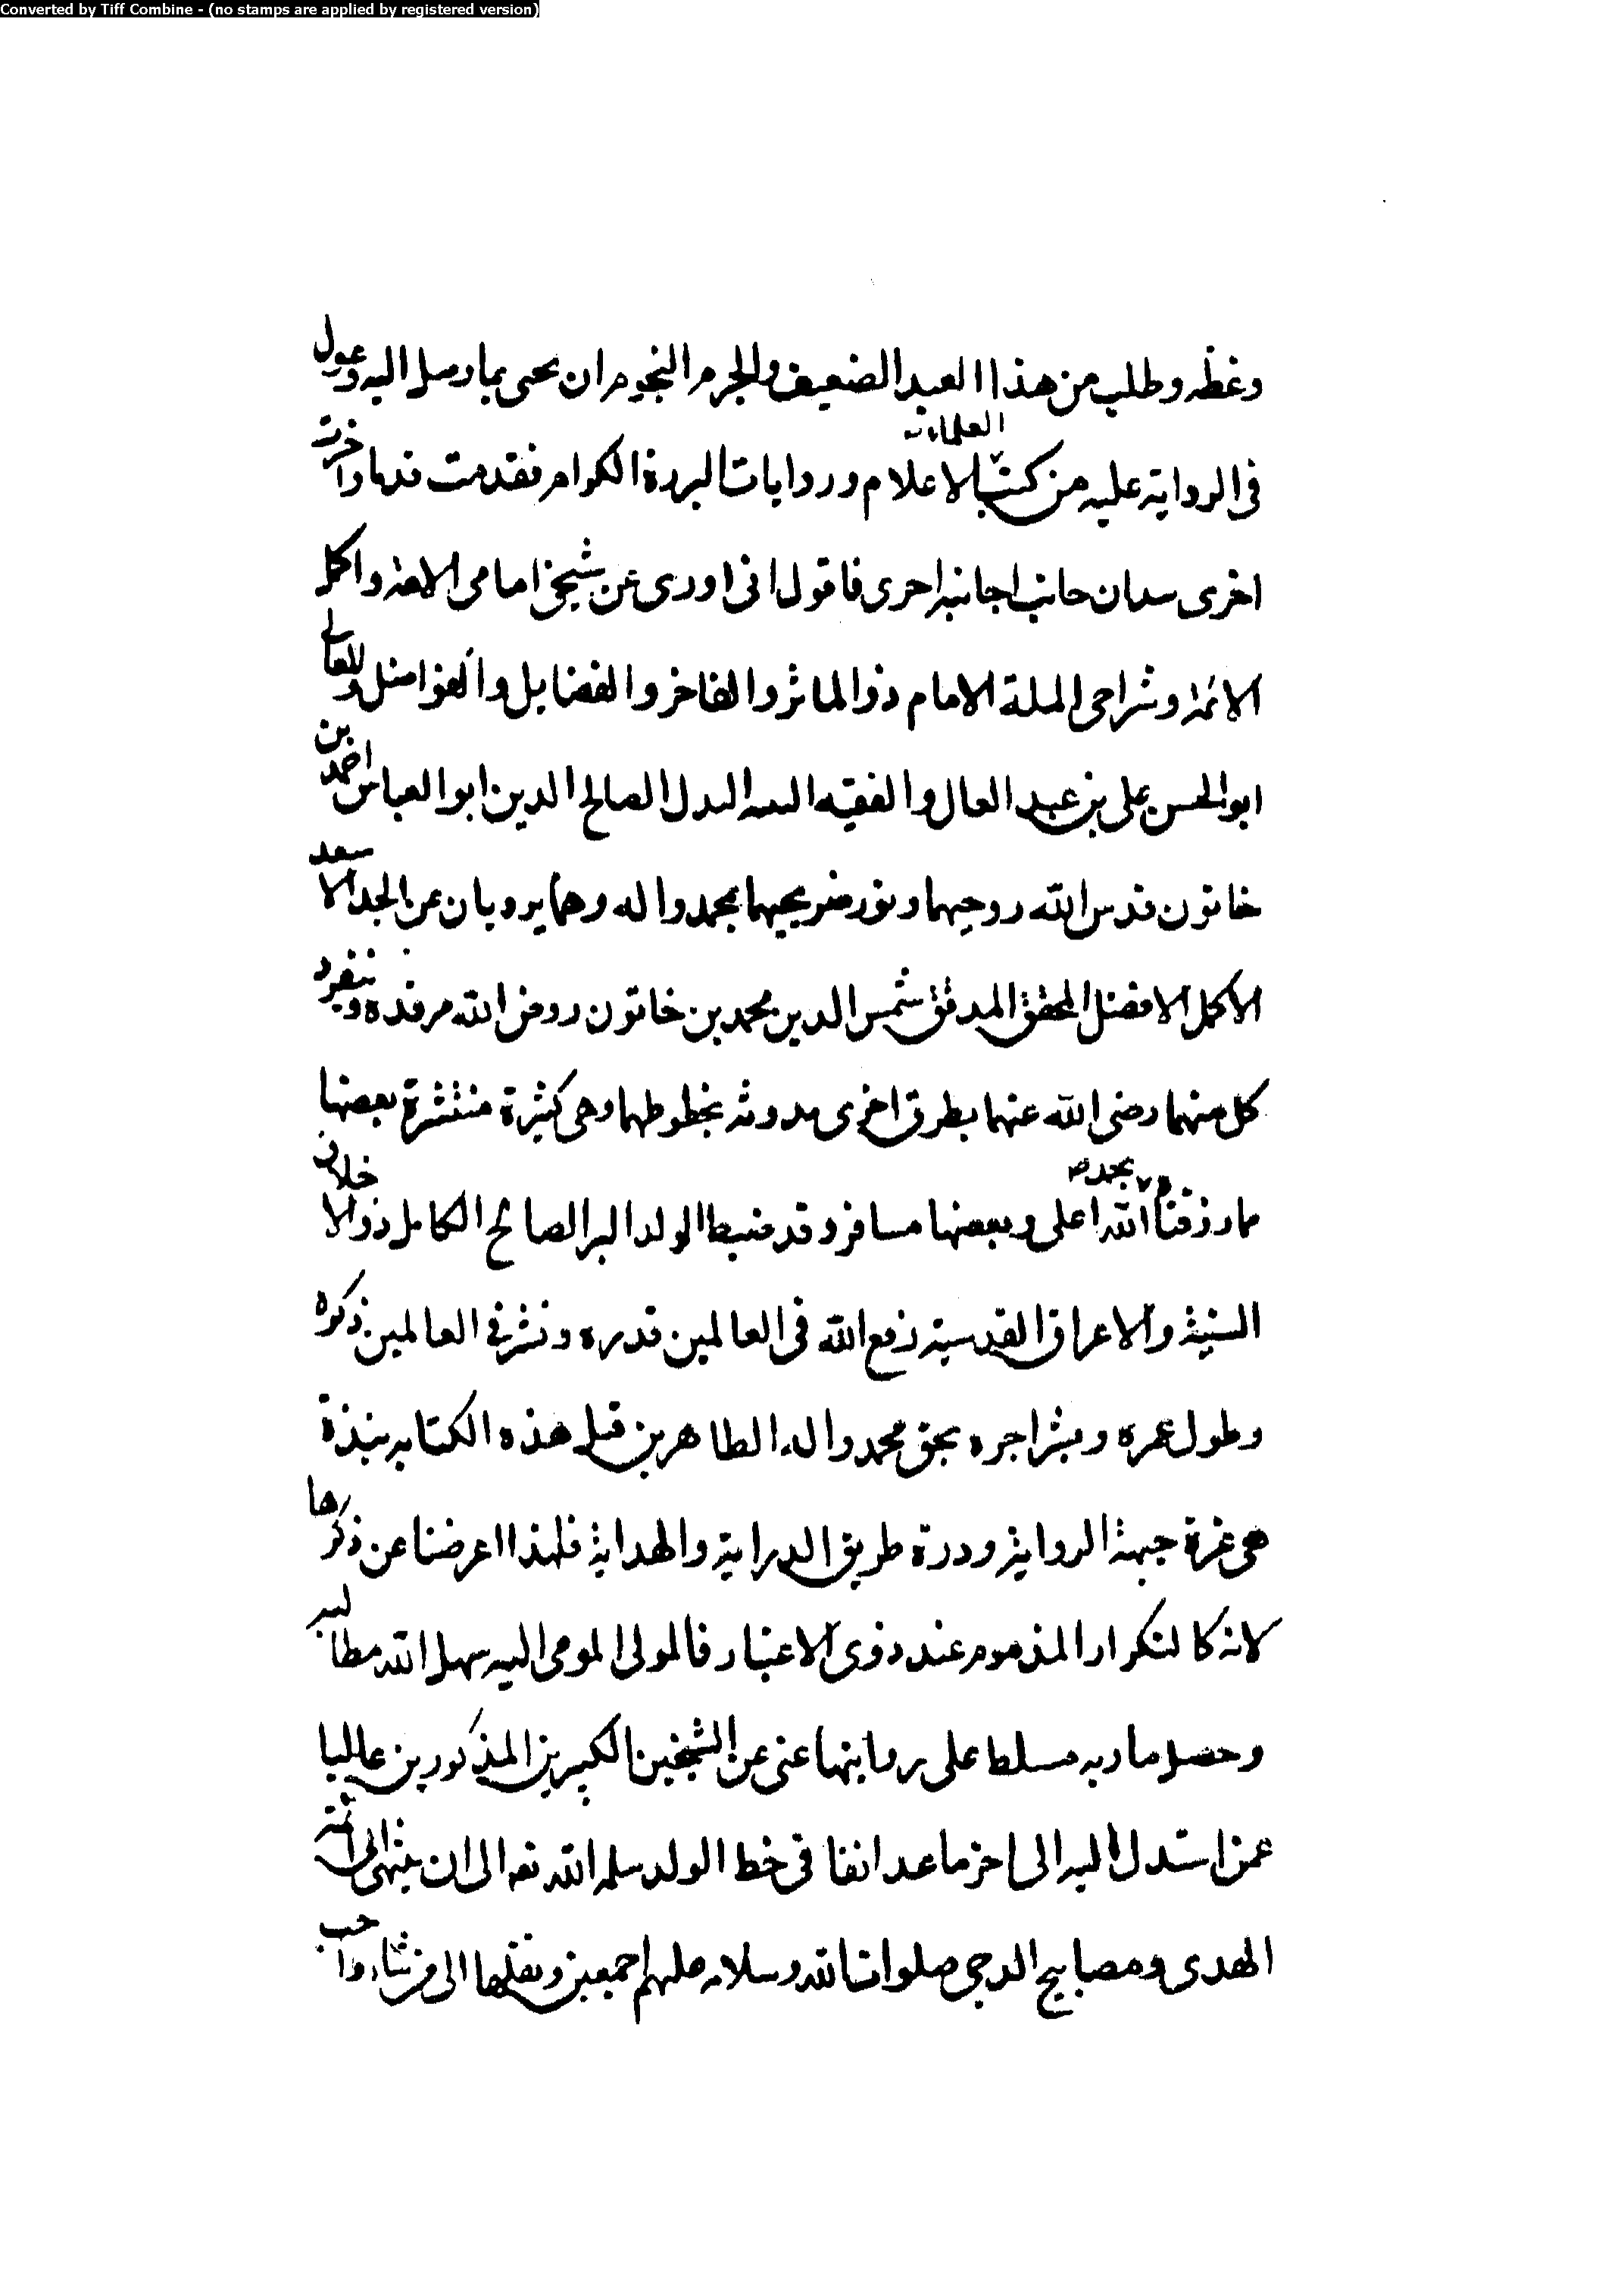 Converted by Tiff Combine - (no stamps are applied by registered version)
وغطه وطلب من هذا العبد الضعيف والجرم النجوم ان يحى بما وصل اليه وعول
فى الرواية عليه من كتب العلماء الاعلام وروايات البررة الكرام فقدمت قدما واخرت
اخرى فاقول انى اروى عن شيخى امامى الامة واكمل
الائمة وسراجى الملة الامام ذو الماثر والمفاخر والفضايل والفواضل والمعالى
ابو الحسن على بن عبد العال والفقيه البدل الصالح الدين ابو العباس احمد بن
خاتون قدس الله روحيهما ونور ضريحيهما بمحمد واله وهما يرويان عن الجد الاسعد
الاكمل الافضل المحقق المدقق شمس الدين محمد بن خاتون روض الله مرقده وينفرد
كل منهما رضى الله عنهما بطرق اخرى مدونة بخطوطهما وهى كثيرة منتشرة بعضها
مما رزقنا الله اعلى وبعضها مسافر وقد ضبط الولد البر الصالح الكامل ذو الاخلاق
السنية والاعراق القدسية رفع الله فى العالمين قدره ونشر فى العالمين ذكره
وطول عمره وبشر اجره بحق محمد واله الطاهرين قبل هذه الكتابه بنبذة
هى غرة جبهة الرواية ودرة طريق الدراية والهداية فلهذا اعرضنا عن ذكرها
لانه كالتكرار المذموم عند ذوى الاعتبار فالمولى المومى اليه سهل الله مطالبه
وحصل ماربه مسلط على روايتها عنى عن الشيخين الكبيرين المذكورين عاليا
عمن استدل اليه الى اخر ما عد انفا فى خط الولد سلمه الله تعالى ان ينتهى الى ائمة
الهدى ومصابيح الدجى صلوات الله وسلامه عليهم اجمعين ونقلها الى من شاء واحب